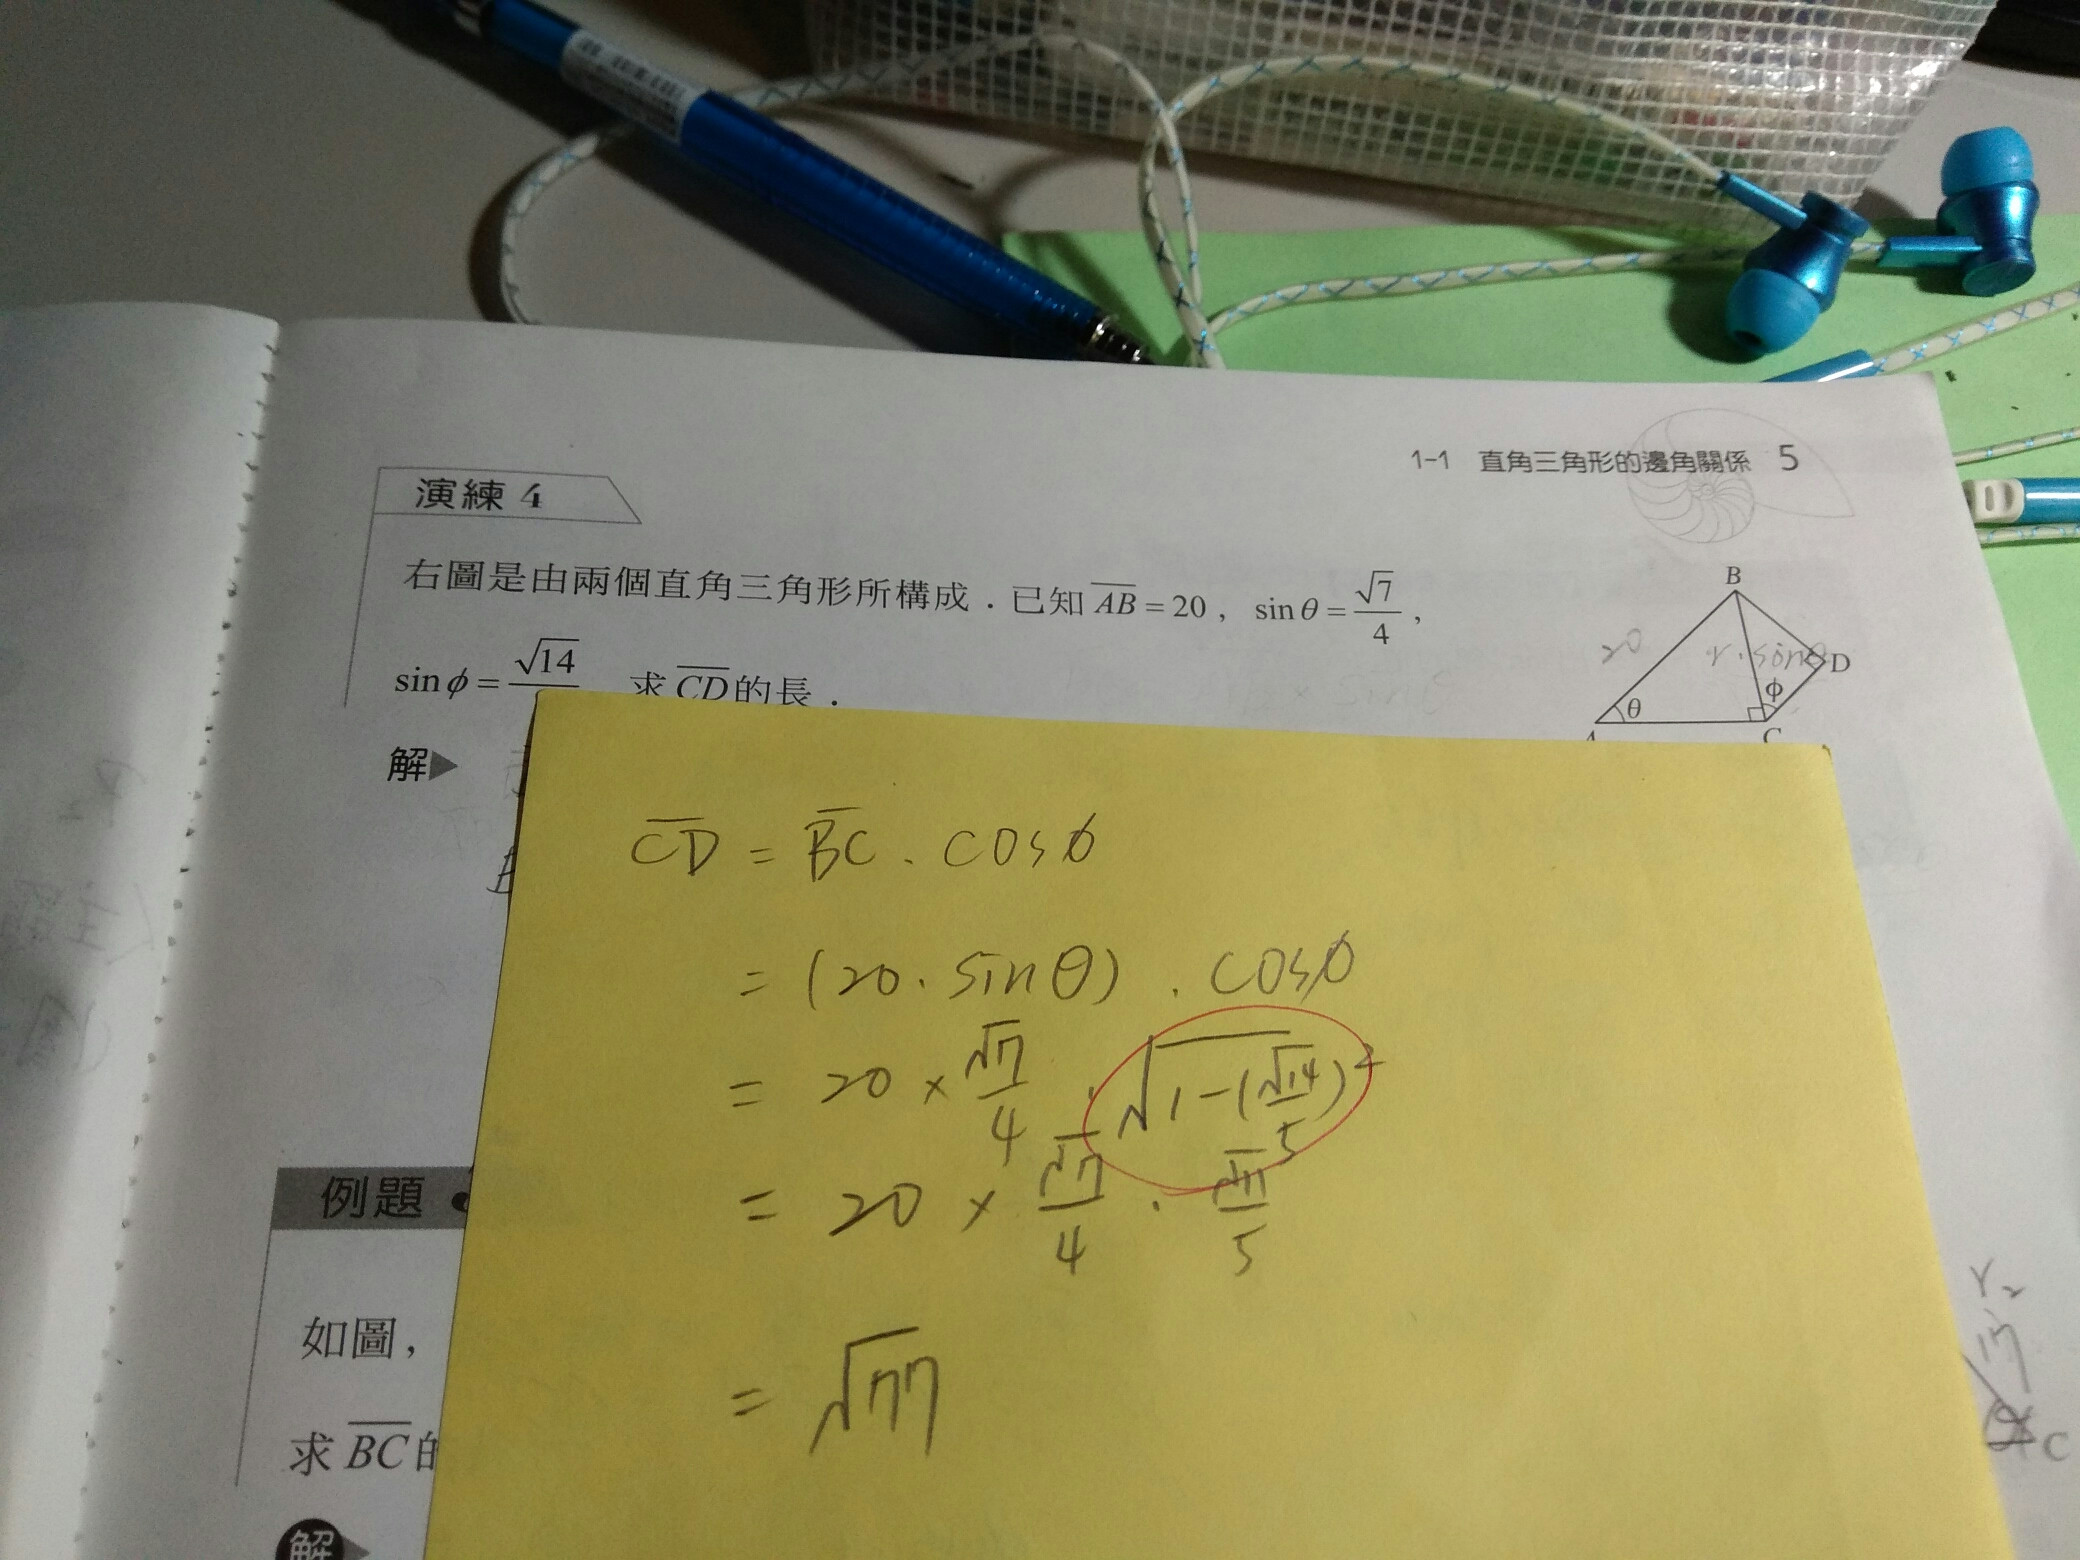 1-1 直角三角形的邊角關係 5
演練 4
右圖是由兩個直角三角形所構成．已知 \overline{AB} = 20，sin θ = \frac{\sqrt{7}}{4}，
sin ϕ = √14 求 \overline{CD} 的長．
B
20
r·sinθ
D
ϕ
θ
A
C
解▶
\overline{CD} = \overline{BC} . cosϕ
= (20. sinθ) . cosϕ
= 20 × \frac{\sqrt{7}}{4} . \sqrt{1-(\frac{\sqrt{14}}{5})^2}
= 20 × \frac{\sqrt{7}}{4} . \frac{\sqrt{11}}{5}
= √77
例題
如圖，
求 \overline{BC} 的
解
C